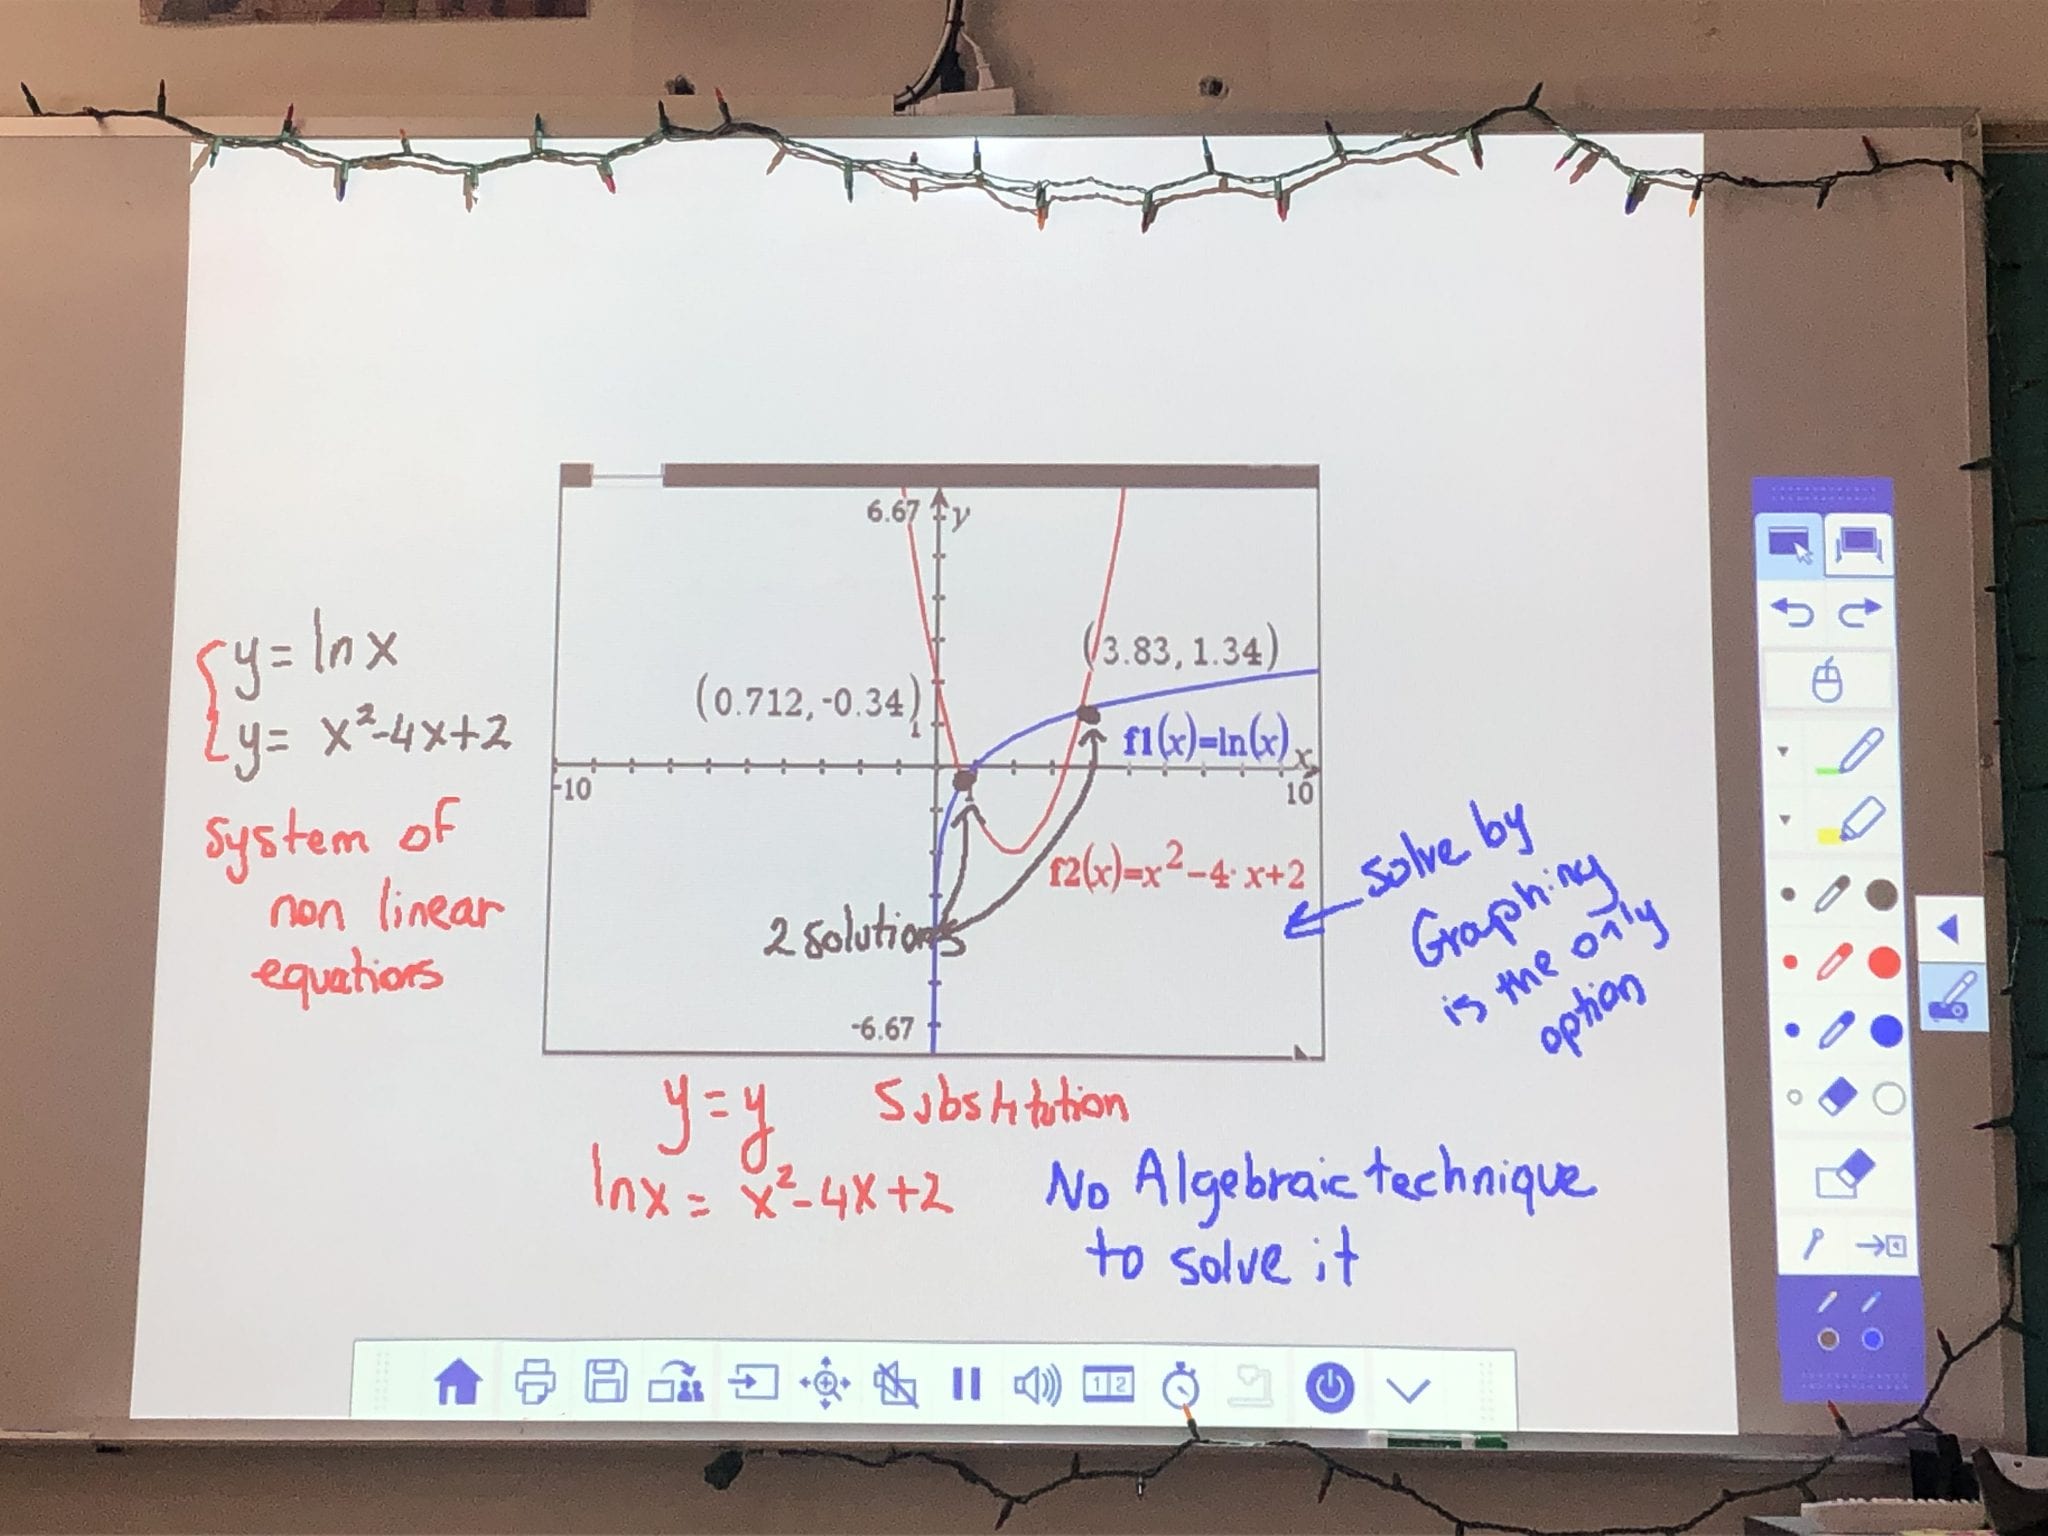 6.67 y
(3.83, 1.34)
(0.712, -0.34) 1
f1(x)=ln(x) x
-10 1 10
f2(x)=x²-4·x+2
2 solutions
-6.67
y= ln x
y= x²-4x+2
system of
non linear
equations
solve by
Graphing
is the only
option
y=y Substitution
lnx = x²-4x+2
No Algebraic technique
to solve it
1 2